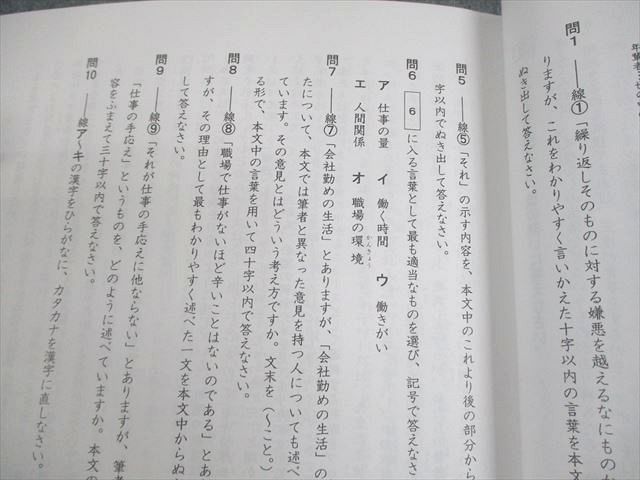 問1 ――線①「繰り返しそのものに対する嫌悪を越えるなにものか
りますが、これをわかりやすく言いかえた十字以内の言葉を本文
ぬき出して答えなさい。
問5 ――線⑤「それ」の示す内容を、本文中のこれより後の部分から
字以内でぬき出して答えなさい。
問6 6 に入る言葉として最も適当なものを選び、記号で答えなさ
ア 仕事の量 イ 働く時間 ウ 働きがい
エ 人間関係 オ 職場の環境
かんきょう
問7 ――線⑦「会社勤めの生活」とありますが、「会社勤めの生活」の
たについて、本文では筆者と異なった意見を持つ人についても述べ
ています。その意見とはどういう考え方ですか。文末を（〜こと。）
る形で、本文中の言葉を用いて四十字以内で答えなさい。
問8 ――線⑧「職場で仕事がないほど辛いことはないのである」とあ
すが、その理由として最もわかりやすく述べた一文を本文中からぬ
して答えなさい。
問9 ――線⑨「それが仕事の手応えに他ならない」とありますが、筆
「仕事の手応え」というものを、どのように述べていますか。本文の
容をふまえて三十字以内で答えなさい。
問10 ――線ア〜キの漢字をひらがなに、カタカナを漢字に直しなさい。